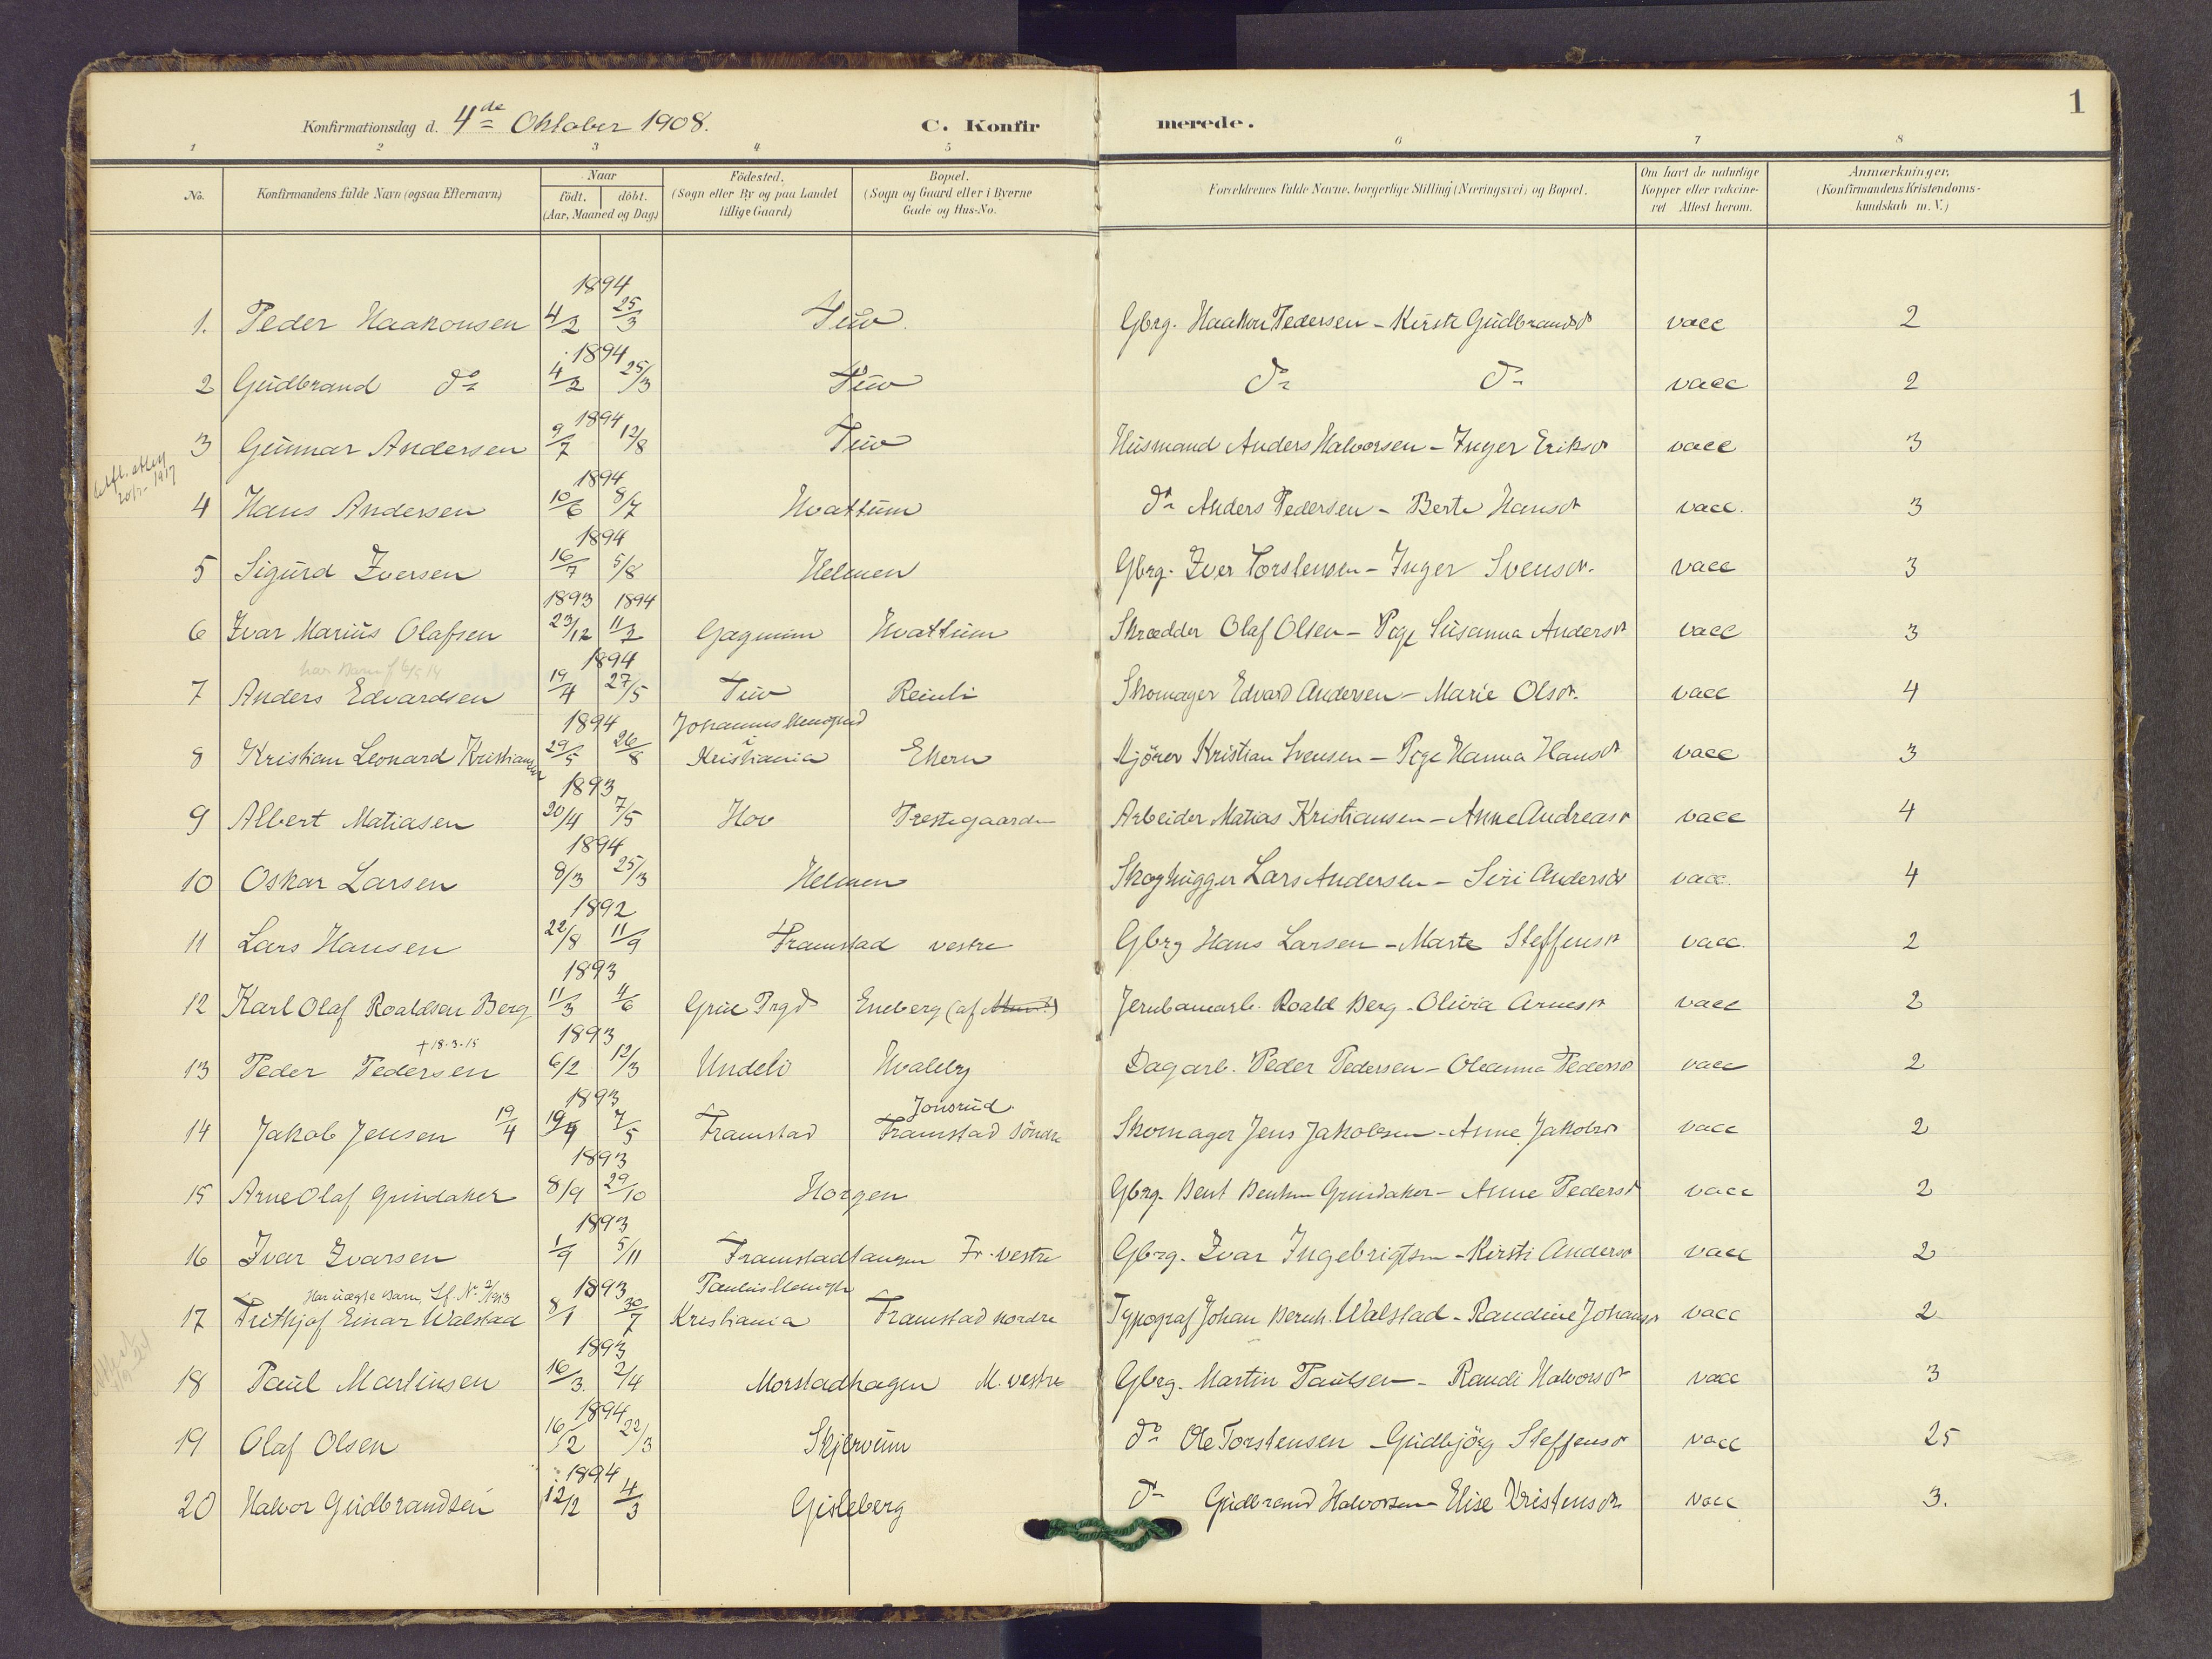 1
Konfirmationsdag d. 4de Oktober 1908. C. Konfirmerede.
1 2 3 4 5 6 7 8
No. Konfirmandens fulde Navn (ogsaa Efternavn) Naar födt. döbt. (Aar, Maaned og Dag) Födested. (Sogn eller By og paa Landet tillige Gaard) Bopæl. (Sogn og Gaard eller i Byerne Gade og Hus-No. Forældrenes fulde Navne, borgerlige Stilling (Næringsvei) og Bopæl. Om havt de naturlige Kopper eller vakcineret Attest herom. Anmærkninger. (Konfirmandens Kristendomskundskab m. V.)
1894
1. Peder Haakonsen 4/2 25/3 Tuv. Gbrg. Haakon Pedersen - Kirsti Gudbrandsd vacc 2
1894
2 Gudbrand do 4/2 25/3 Tuv do do vacc 2
1894
3 Gunnar Andersen 9/7 12/8 Tuv Husmand Anders Halvorsen - Inger Eriksd vacc 3
1894
4 Hans Andersen 10/6 8/7 Hvattum do Anders Pedersen - Berte Hansd vacc. 3
1894
5 Sigurd Iversen 16/7 5/8 Helmen Gbrg. Iver Torstensen - Inger Svensd. vacc 3
1893 1894
6 Ivar Marius Olafsen 23/12 11/2 Gagnum Hvattum Skrædder Olaf Olsen - Pige Susanna Andersd vacc 3
1894
7 Anders Edvardsen 19/4 27/5 Tuv Reinli Skomager Edvard Andersen - Marie Olsd. vacc 4
1894 Johannes Menighed i
8 Kristian Leonard Kristiansen 29/5 26/8 Kristiania Ekern Kjörer Kristian Svensen - Pige Hanna Hansd vacc 3
1893
9 Albert Matiasen 20/4 7/5 Hov Prestegaarden Arbeider Matias Kristiansen - Anne Andreasd vacc 4
1894
10 Oskar Larsen 8/3 25/3 Helmen Skoghugger Lars Andersen - Siri Andersd vacc. 4
1892
11 Lars Hansen 22/8 11/9 Framstad vestre Gbrg Hans Larsen - Marte Steffensd vacc. 2
1893
12 Karl Olaf Roaldsen Berg 11/3 4/6 Grue Prgd Eneberg (af Jernbanearb. Roald Berg - Olivia Arnesd vacc 2
+ 18.3.15 1893
13 Peder Pedersen 6/2 12/3 Undeli Hvaleby Dagarb. Peder Pedersen - Oleanna Pedersd vacc 2
1893 Jonsrud
14 Jakob Jensen 19/4 19/4 7/5 Framstad Framstad söndre Skomager Jens Jakobsen - Anne Jakobsd vacc 2
1893
15 Arne Olaf Grindaker 8/9 29/10 Horgen Gbrg. Bent Bentsen Grindaker - Anne Pedersd vacc 2
1893
16 Ivar Ivarsen 1/9 5/11 Framstadtangen Fr. vestre Gbrg. Ivar Ingebrigtsen - Kirsti Andersd vacc 2
Har uægte Barn, 1893 Paulus Menighed
17 Frithjof Einar Walstad 8/1 30/7 Kristiania Framstad nordre Typograf Johan Bernh. Walstad - Raudine Johansd vacc 2
1893
18 Paul Martinsen 16/3. 2/4 Morstadhagen M. vestre Gbrg. Martin Paulsen - Randi Halvorsd vacc 3
1894
19 Olaf Olsen 16/2 22/3 Skjervum do Ole Torstensen - Gudbjörg Steffensd vacc 25
1894
20 Halvor Gudbrandsen 12/2 4/3 Gisleberg do Gudbrand Halvorsen - Elise Kristensd vacc 3.